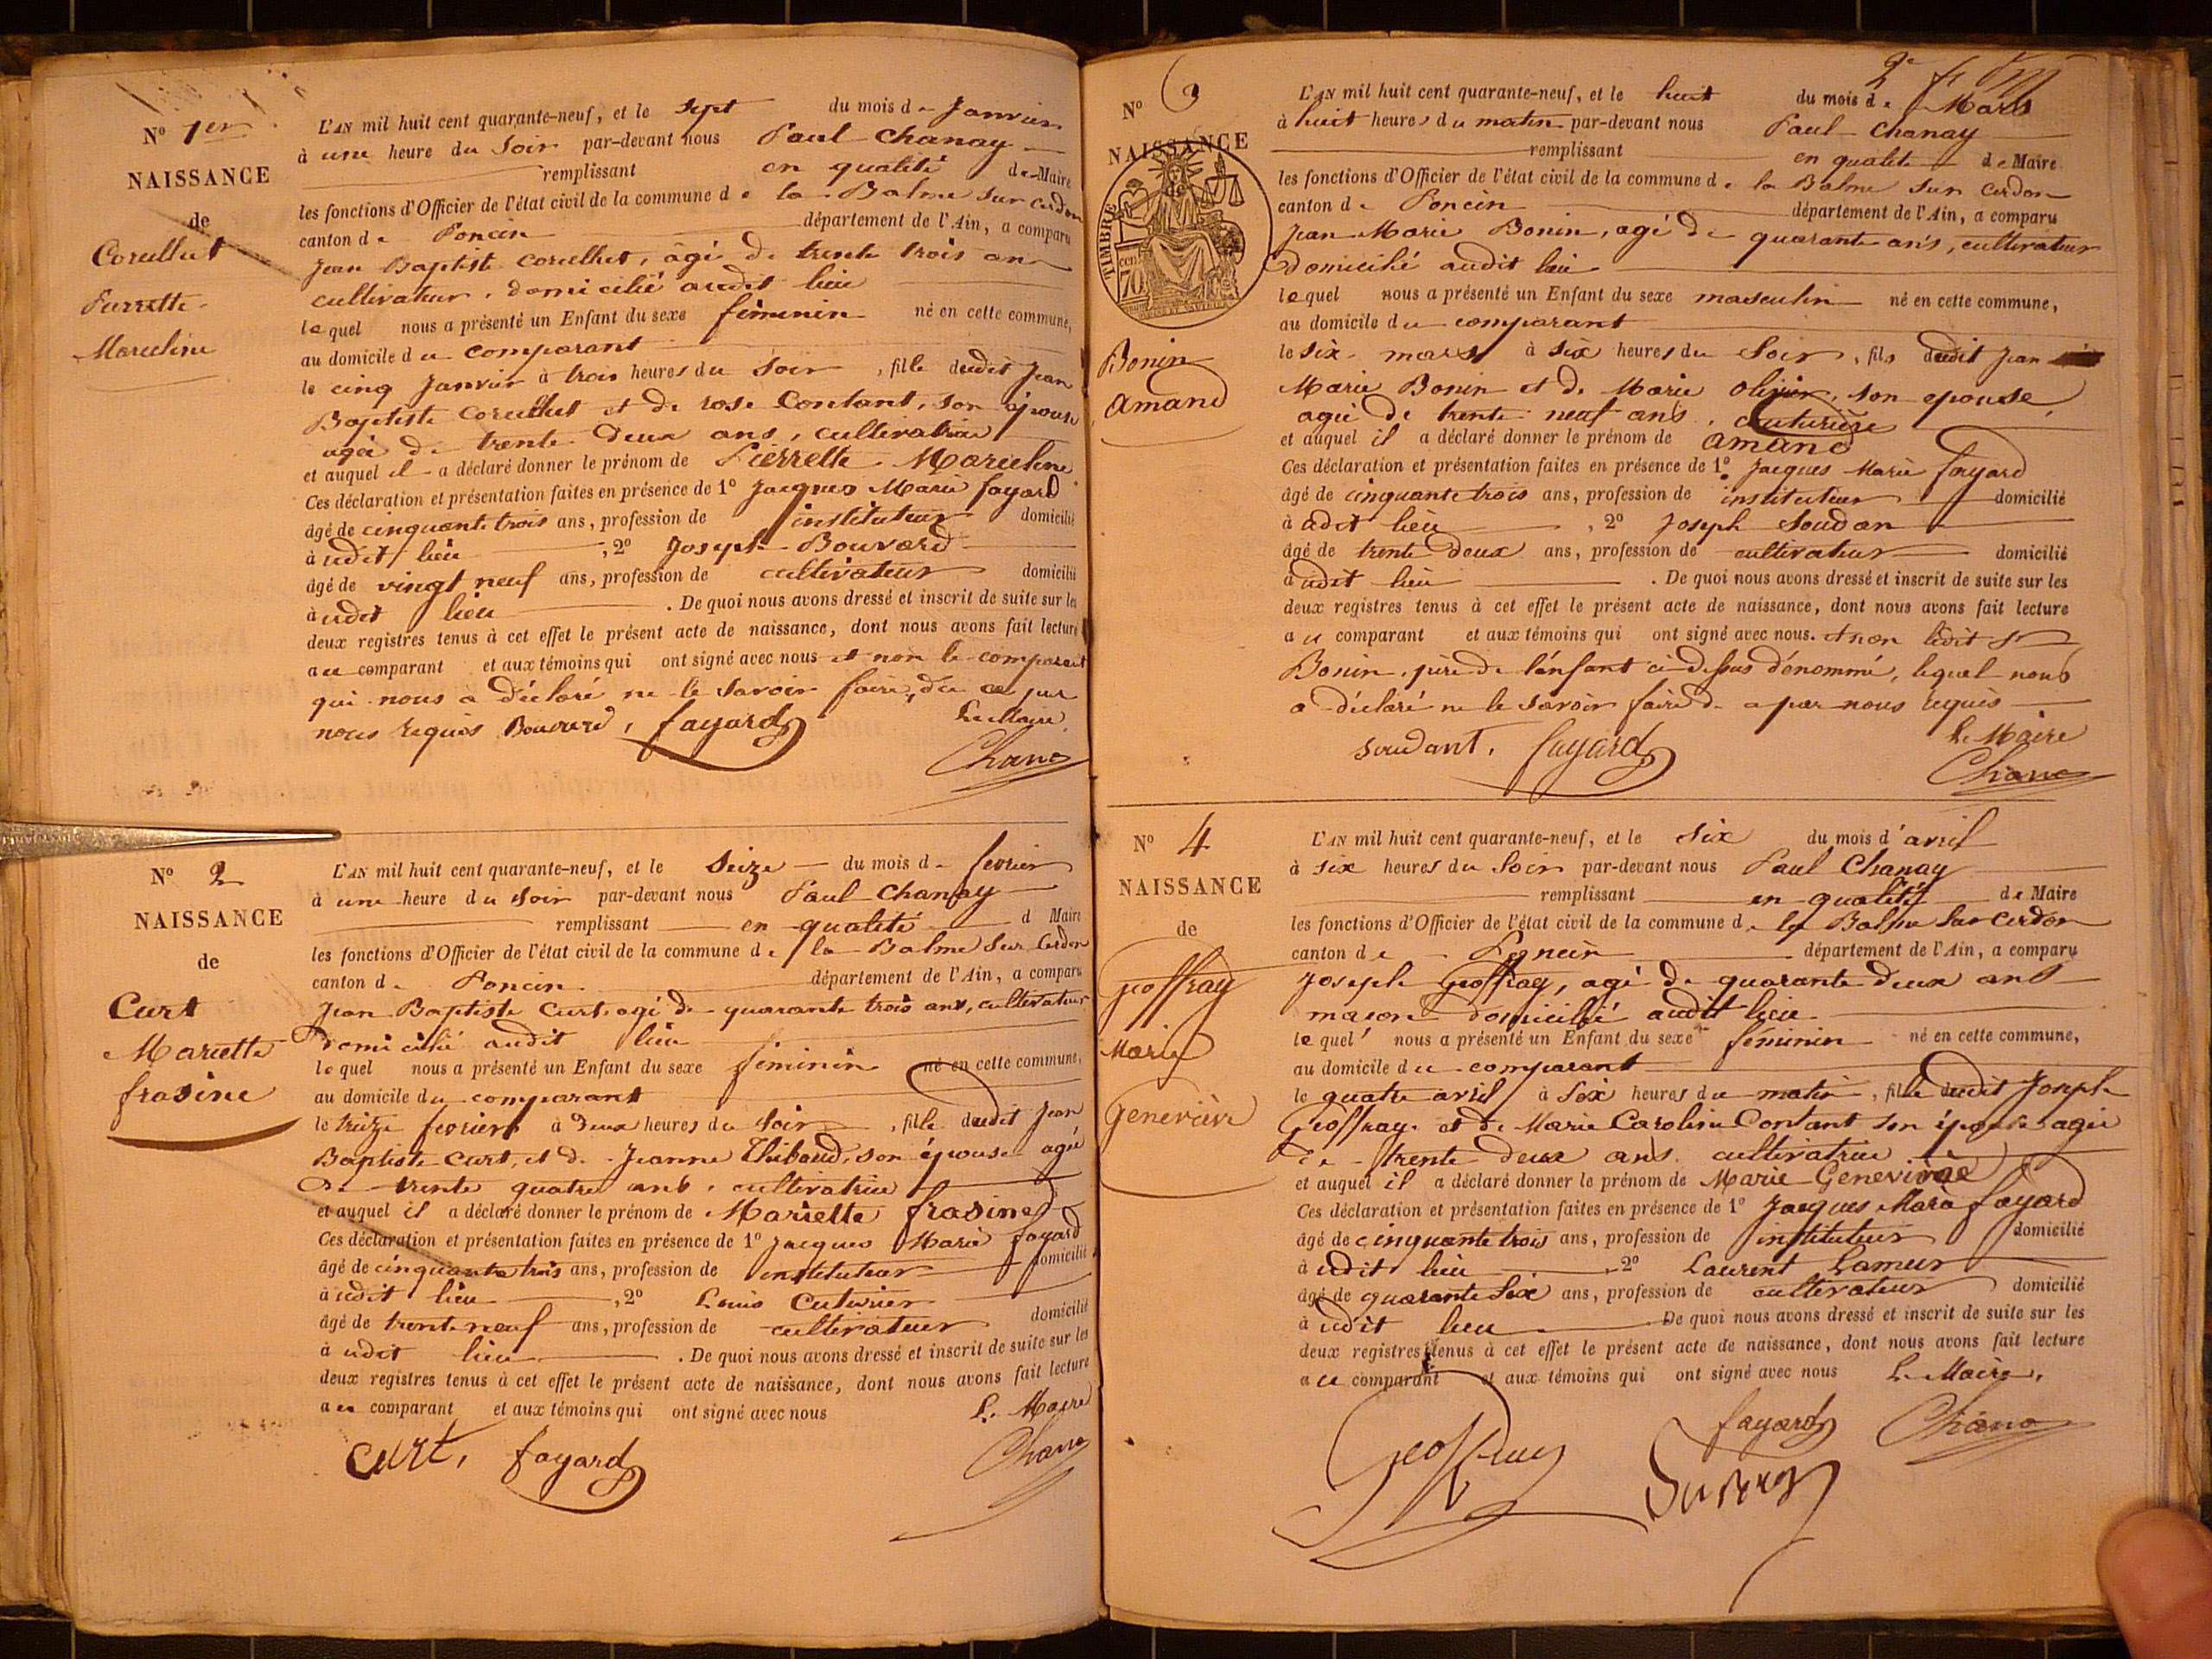 N° 1er
NAISSANCE
de
Corullut
Pierrette
Marceline
L'AN mil huit cent quarante-neuf, et le sept du mois de Janvier
à une heure du soir par-devant nous Paul Chanay
remplissant en qualité de Maire
les fonctions d'Officier de l'état civil de la commune de la Balme sur Cerdon
canton de Poncin département de l'Ain, a comparu
Jean Baptiste , âgé de trente trois ans
cultivateur, domicilié audit lieu
lequel nous a présenté un Enfant du sexe féminin né en cette commune,
au domicile du comparant
le cinq Janvier à trois heures du soir, fille dudit Jean
Baptiste et de rose Contant, son épouse
agée de trente deux ans, cultivatrice
et auquel il a déclaré donner le prénom de Pierrette Marceline
Ces déclaration et présentation faites en présence de 1° Jacques Marie fayard
âgé de cinquante trois ans, profession de instituteur domicilié
à udit lieu , 2° Joseph Bouvard
âgé de vingt neuf ans, profession de cultivateur domicilié
à udit lieu . De quoi nous avons dressé et inscrit de suite sur les
deux registres tenus à cet effet le présent acte de naissance, dont nous avons fait lecture
au comparant et aux témoins qui ont signé avec nous et non le comparant
qui nous a déclaré ne le savoir faire, de ce par
nous requis Bouvard, fayard Le Maire
Chana
N° 2
NAISSANCE
de
Curt
Mariette
frasine
L'AN mil huit cent quarante-neuf, et le Seize du mois de fevrier
à une heure du soir par-devant nous Paul Chanay
remplissant en qualité d Maire
les fonctions d'Officier de l'état civil de la commune de la Balme sur Cerdon
canton de Poncin département de l'Ain, a comparu
Jean Baptiste Curt, agé de quarante trois ans, cultivateur
domicilié audit lieu
lequel nous a présenté un Enfant du sexe féminin né en cette commune,
au domicile du comparant
le treize fevrier à deux heures du soir, fille dudit Jean
Baptiste Curt, et de Jeanne Thibaud, son épouse agée
de trente quatre ans, cultivatrice
et auquel il a déclaré donner le prénom de Mariette frasine
Ces déclaration et présentation faites en présence de 1° Jacques Marie fayard
âgé de cinquante trois ans, profession de instituteur domicilié
à udit lieu , 2° Louis Cuturier
âgé de trente neuf ans, profession de cultivateur domicilié
à udit lieu . De quoi nous avons dressé et inscrit de suite sur les
deux registres tenus à cet effet le présent acte de naissance, dont nous avons fait lecture
au comparant et aux témoins qui ont signé avec nous Le Maire
Curt, fayard Chana
2e f.
N° 3
NAISSANCE
TIMBRE
70 cent
Bonin
amand
L'AN mil huit cent quarante-neuf, et le huit du mois de Mars
à huit heures du matin par-devant nous Paul Chanay
remplissant en qualité de Maire
les fonctions d'Officier de l'état civil de la commune de la Balme sur Cerdon
canton de Poncin département de l'Ain, a comparu
Jean Marie Bonin, agé de quarante ans, cultivateur
domicilié audit lieu
lequel nous a présenté un Enfant du sexe masculin né en cette commune,
au domicile du comparant
le six mars à six heures du soir, fils dudit Jean
Marie Bonin et de Marie olivier, son epouse,
agée de trente neuf ans, couturière
et auquel il a déclaré donner le prénom de amand
Ces déclaration et présentation faites en présence de 1° Jacques Marie fayard
âgé de cinquante trois ans, profession de instituteur domicilié
à udit lieu , 2° Joseph Soudan
âgé de trente deux ans, profession de cultivateur domicilié
à udit lieu . De quoi nous avons dressé et inscrit de suite sur les
deux registres tenus à cet effet le présent acte de naissance, dont nous avons fait lecture
au comparant et aux témoins qui ont signé avec nous. et non ledit Sr
Bonin, père de l'enfant ci-dessus dénommé, lequel nous
a déclaré ne le savoir faire de a par nous requis
soudant, fayard Le Maire
Chana
N° 4
NAISSANCE
de
geoffray
Marie
Geneviève
L'AN mil huit cent quarante-neuf, et le six du mois d'avril
à six heures du Soir par-devant nous Paul Chanay
remplissant en qualité de Maire
les fonctions d'Officier de l'état civil de la commune de la Balme sur Cerdon
canton de Poncin département de l'Ain, a comparu
Joseph Geoffray, agé de quarante deux ans
macon domicilié audit lieu
lequel nous a présenté un Enfant du sexe féminin né en cette commune,
au domicile du comparant
le quatre avril à six heures du matin, fille dudit Joseph
Geoffray et de Marie Caroline Contant son épouse agée
de trente deux ans cultivatrice
et auquel il a déclaré donner le prénom de Marie Geneviève
Ces déclaration et présentation faites en présence de 1° Jacques Marie fayard
âgé de cinquante trois ans, profession de instituteur domicilié
à udit lieu , 2° Laurent Lameur
âgé de quarante six ans, profession de cultivateur domicilié
à udit lieu De quoi nous avons dressé et inscrit de suite sur les
deux registres tenus à cet effet le présent acte de naissance, dont nous avons fait lecture
au comparant et aux témoins qui ont signé avec nous Le Maire,
Geoffray fayard Chana